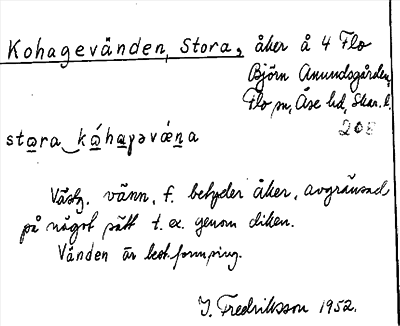 Kohagevänden, Stora, åker å 4 Flo
Björn Anundsgården,
Flo sn, Åse hd, Skar. l.
208
stɑra kɑ́hɑɣəvǽna
Västg. vänn, f. betyder åker, avgränsad
på något sätt t. ex. genom diken.
Vänden är best. form sing.
J. Fredriksson 1952.